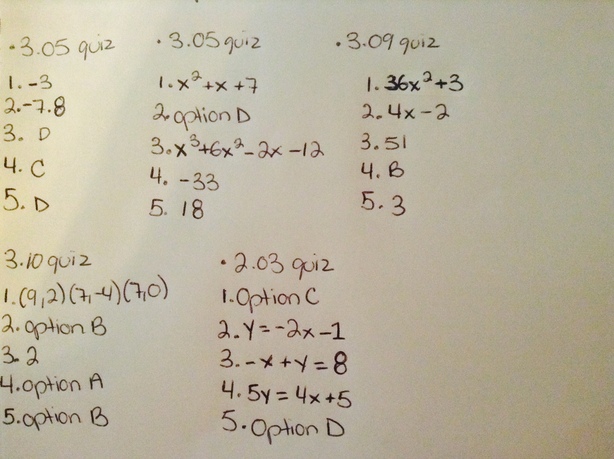 · 3.05 quiz
1. -3
2. -7.8
3. D
4. C
5. D
· 3.05 quiz
1. x² + x + 7
2. option D
3. x³+6x²-2x-12
4. -33
5. 18
· 3.09 quiz
1. 36x²+3
2. 4x-2
3. 51
4. B
5. 3
3.10 quiz
1. (9,2)(7,-4)(7,0)
2. option B
3. 2
4. option A
5. option B
· 2.03 quiz
1. Option C
2. y=-2x-1
3. -x+y=8
4. 5y=4x+5
5. Option D